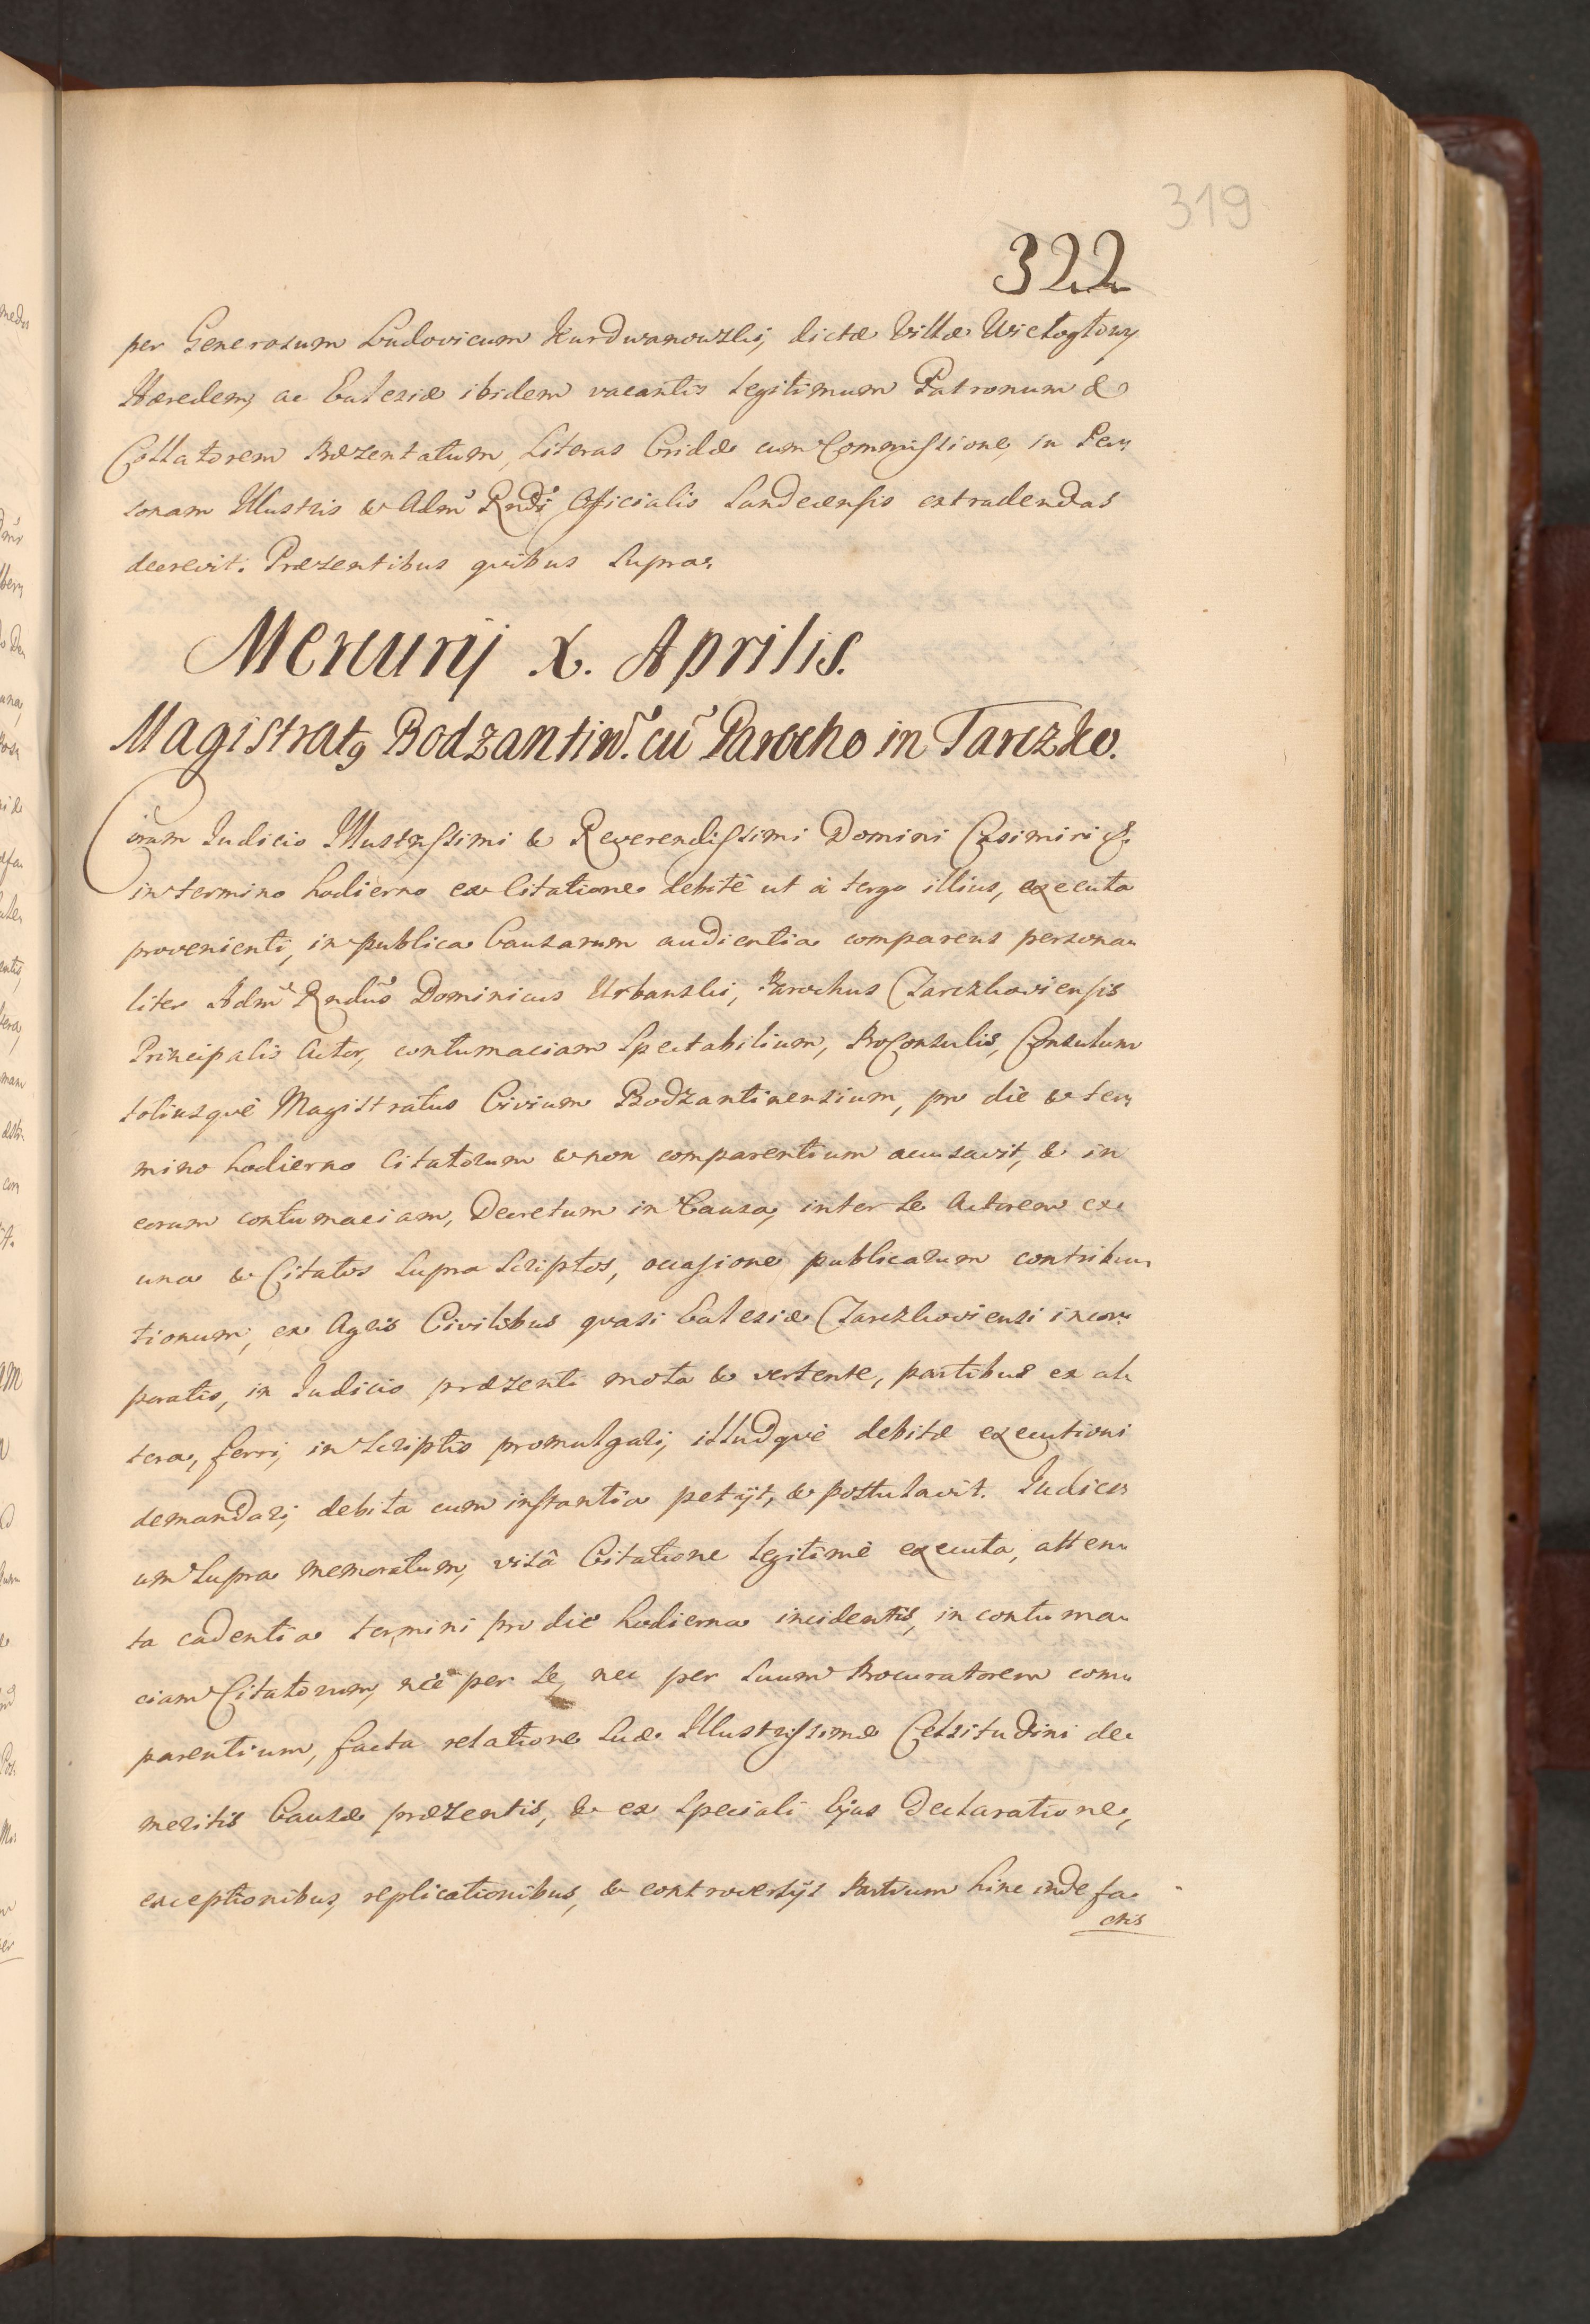 319
322
per Generosum Ludovicum Kurdwanowski, dictæ Villæ Wielogłowy
Hæredem, ac Ecclesiæ ibidem vacantis legitimum Patronum &
Collatorem Præzentatum, Literas Cridæ cum Commissione, in Per,
sonam Illustris & Adm̃ Rndi Officialis Sandecensis extradendas
decrevit. Præsentibus quibus supra.
Mercurij X. Aprilis.
Magistratq Bodzantin. cũ Parocho in Tarczko.
Coram Iudicio Illustrissimi & Reverendissimi Domini Casimiri &.
in termino hodierno ex Citatione debitè ut à tergo illius, executa
provenienti, in publica Causarum audientia comparens persona,,
liter Adm̃ Rndũs Dominicus Urbanski, Parochus Tarczkoviensis
Principalis Actor, contumaciam Spectabilium, ProConsulis, Consulum
totiusquè Magistratus Civium Bodzantinensium, pro diè & ter,,
mino hodierno Citatorum & non comparentium accusavit, & in
eorum contumaciam, Decretum in Causa, inter se Actorem ex
una & Citatos supra scriptos, occasione publicarum contribu,,
tionum, ex Agris Civilibus quasi Ecclesiæ Tarczkoviensi incor,,
poratis, in Iudicio præzenti mota & vertente, partibus ex al,
tera, ferri, in scriptis promulgari, illudquè debitæ executioni
demandari, debita cum instantia petijt, & postulavit. Iudici,,
um supra memoratum, visâ Citatione legitimè executa, atten,,
ta cadentia termini pro die hodierna incidentis, in contuma,,
ciam Citatorum, nec per se, nec per suum Procuratorem com,,
parentium, facta relatione suæ Illustrissimæ Celsitudini de
meritis Causæ præzentis, & ex speciali Ejus Declaratione,
exceptionibus, replicationibus, & controversijs Partium hinc inde fa,
ctis